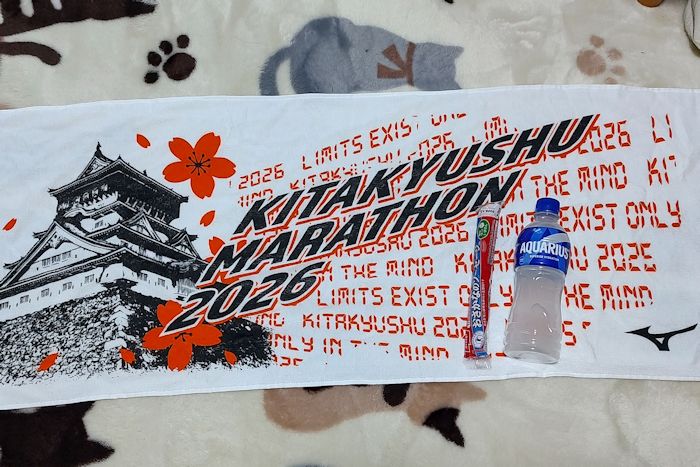 2026 LIMITS EXIST ONLY
KITAKYUSHU 2026 LIMI
KITAKYUSHU
MARATHON
2026
IN THE MIND KIT
LIMITS EXIST ONLY
KITAKYUSHU 2026
THE MIND KITAKYUSHU 2026
LIMITS EXIST ONLY THE MIND
KITAKYUSHU 2026
ONLY IN THE MIND
AQUARIUS